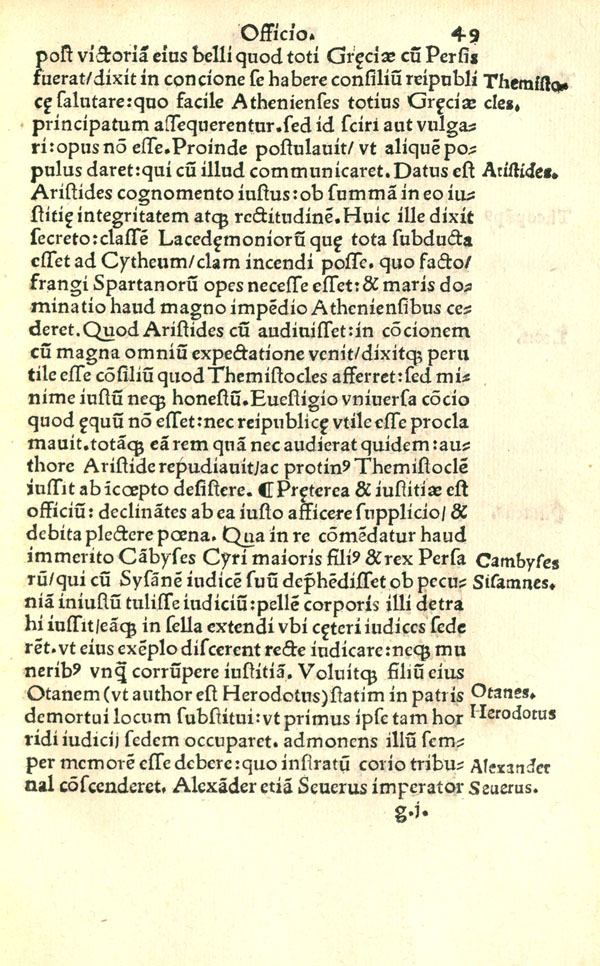 Officio. 49
post victoriã eius belli quod toti Gręciæ cũ Persis
fuerat/dixit in concione se habere consiliũ reipubli Themisto-
cę salutare:quo facile Athenienses totius Gręciæ cles.
principatum assequerentur.sed id sciri aut vulga⸗
ri:opus nõ esse.Proinde postulauit/ vt aliquẽ po⸗
pulus daret:qui cũ illud communicaret. Datus est Aristides.
Aristides cognomento iustus:ob summã in eo iu⸗
stitię integritatem atqꝫ rectitudinẽ.Huic ille dixit
secreto:classẽ Lacedęmoniorũ quę tota subducta
esset ad Cytheum/clam incendi posse. quo facto/
frangi Spartanorũ opes necesse esset:& maris do⸗
minatio haud magno impẽdio Atheniensibus ce⸗
deret.Quod Aristides cũ audiuisset:in cõcionem
cũ magna omniũ expectatione venit/dixitqꝫ peru
tile esse cõsiliũ quod Themistocles afferret:sed mi⸗
nime iustũ neqꝫ honestũ.Euestigio vniuersa cõcio
quod ęquũ nõ esset:nec reipublicę vtile esse procla
mauit.totãqꝫ eã rem quã nec audierat quidem:au⸗
thore Aristide repudiauit/ac protinꝰ Themistoclẽ
iussit ab icœpto desistere. ¶ Pręterea & iustitiæ est
officiũ: declinãtes ab ea iusto afficere supplicio/ &
debita plectere pœna. Qua in re cõmẽdatur haud
immerito Cãbyses Cyri maioris filiꝰ & rex Persa Cambyses
rũ/qui cũ Sysãnẽ iudicẽ suũ dep̃hẽdisset ob pecu⸗ Sisamnes.
niã iniustũ tulisse iudiciũ:pellẽ corporis illi detra
hi iussit/eãqꝫ in sella extendi vbi cęteri iudices sede
rẽt.vt eius exẽplo discerent recte iudicare:neqꝫ mu
neribꝰ vnq̃ corrũpere iustitiã. Voluitqꝫ filiũ eius
Otanem (vt author est Herodotus) statim in patris Otanes.
demortui locum substitui:vt primus ipse tam hor Herodotus
ridi iudicij sedem occuparet. admonens illũ sem⸗
per memorẽ esse debere:quo instratũ corio tribu⸗ Alexander
nal cõscenderet. Alexãder etiã Seuerus imperator Seuerus.
g.j.